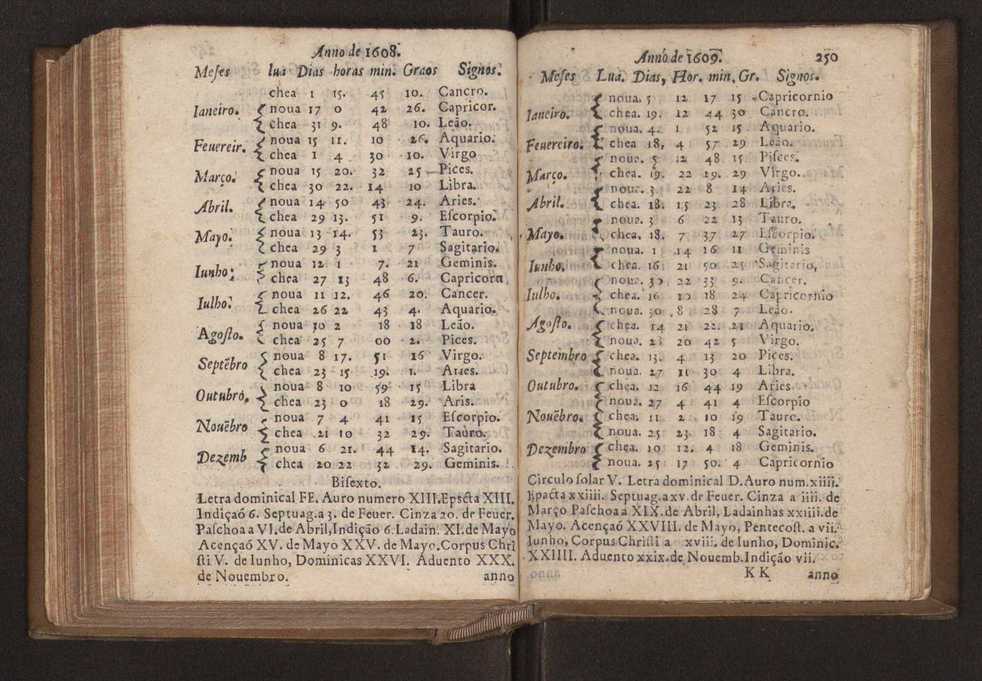 Anno de 1608.
Meses lua Dias horas min. Graos Signos.
chea 1 15. 45 10. Cancro.
Ianeiro. noua 17 0 42 26. Capricor.
chea 31 9. 48 10. Leão.
Feuereir. noua 15 11. 10 26. Aquario.
chea 1 4 30 10. Virgo
Março. noua 15 20. 32 25 Pices.
chea 30 22. 14 10 Libra.
Abril. noua 14 50 43 24. Aries.
chea 29 13. 51 9. Eſcorpio.
Mayo. noua 13 14. 53 23. Tauro.
chea 29 3 1 7 Sagitario.
Iunho; noua 12 1 7. 21 Geminis.
chea 27 13 48 6. Capricorn
Iulho. noua 11 12. 46 20. Cancer.
chea 26 22 43 4. Aquario.
Agoſto. noua 10 2 18 18 Leão.
chea 25 7 00 2. Pices.
Septẽbro noua 8 17. 51 16 Virgo.
chea 23 15 19. 1. Aries.
Outubro, noua 8 10 59 15 Libra
chea 23 0 18 29. Aris.
Nouẽbro noua 7 4 41 15 Eſcorpio.
chea 21 10 32 29. Tauro.
Dezemb noua 6 21. 44 14. Sagitario.
chea 20 22 32 29. Geminis.
Biſexto.
Letra dominical FE. Auro numero XIII. Epacta XIII.
Indiçaõ 6. Septuag.a 3. de Feuer. Cinza 20. de Feuer.
Paſchoa a VI. de Abril, Indição 6. Ladain. XI. de Mayo
Acençaõ XV. de Mayo XXV. de Mayo. Corpus Chri
ſti V. de Iunho, Dominicas XXVI. Aduento XXX.
de Nouembro. anno
Anno de 1609. 250
Meſes Lua. Dias, Hor. min, Gr. Signos.
noua. 5 12 17 15 Capricornio
Ianeiro. chea. 19. 12 44 30 Cancro.
noua. 4. 1 52 15 Aquario.
Feuereiro. chea 18, 4 57 29 Leão.
noua. 5 12 48 15 Piſces.
Março. chea. 19. 22 19. 29 Virgo.
noua. 3 22 8 14 Aries.
Abril. chea. 18. 15 23 28 Libra.
noua. 3 6 22 13 Tauro.
Mayo. chea. 18. 7 37 27 Eſcorpio.
noua. 1 14 16 11 Geminis
Iunho. chea. 16 21 50 25 Sagitario,
noua. 30 22 33 9. Cancer.
Iulho. chea. 16 10 18 24 Capricornio
noua. 30 8 28 7 Leão.
Agoſto. chea. 14 21 22. 21 Aquario.
noua. 28 20 42 5 Virgo.
Septembro chea. 13. 4 13 20 Pices.
noua. 27 11 30 4 Libra.
Outubro. chea. 12 16 44 19 Aries
noua. 27 4 41 4 Eſcorpio
Nouẽbro. chea. 11 2 10 19 Tauro.
noua. 25 23 18 4 Sagitario.
Dezembro chea. 10 12. 4 18 Geminis.
noua. 25 17 50. 4 Capricornio
Circulo ſolar V. Letra dominical D. Auro num. xiiii.
Epacta xxiiii. Septuag.a xv. de Feuer. Cinza a iiii. de
Março Paſchoa a XIX. de Abril, Ladainhas xxiiii. de
Mayo. Acençaõ XXVIII. de Mayo, Pentecoſt. a vii.
Iunho, Corpus Chriſti a xviii. de Iunho, Dominic.
XXIIII. Aduento xxix. de Nouemb. Indição vii.
KK anno